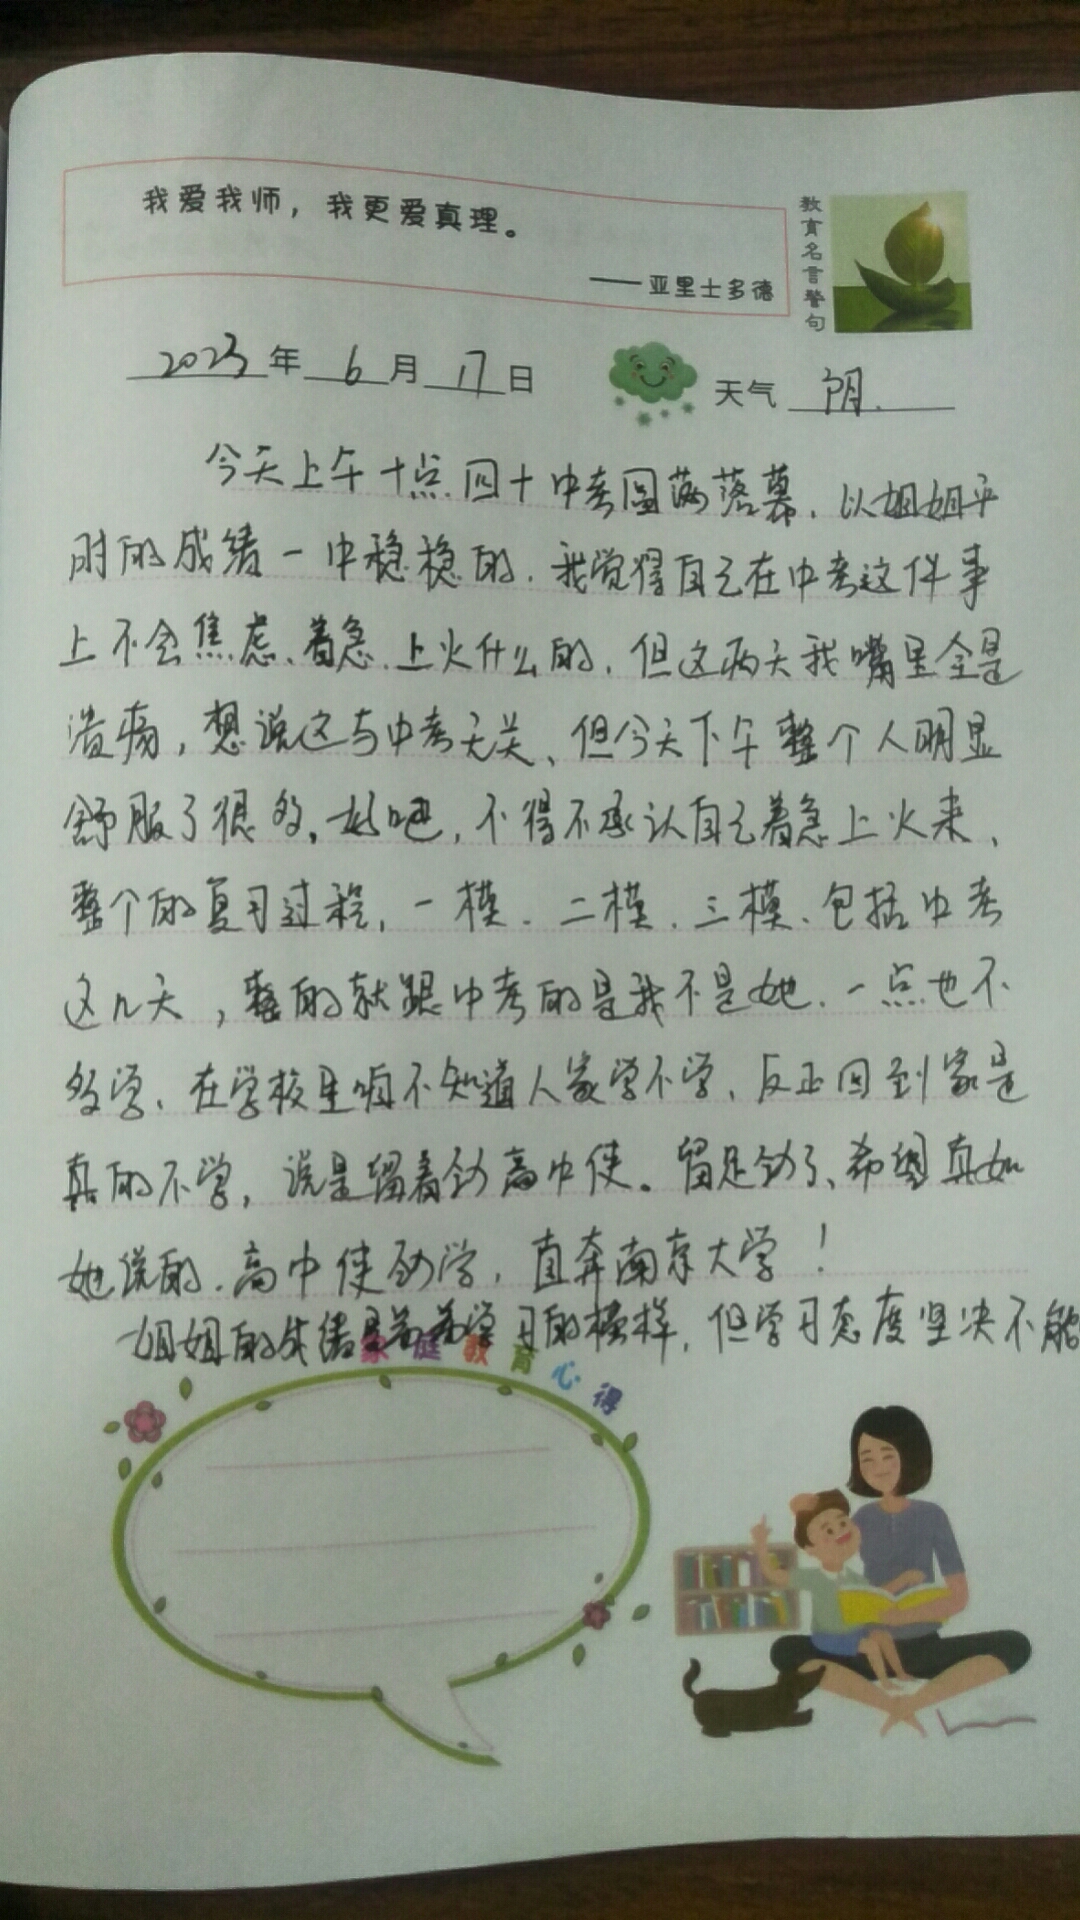 我爱我师，我更爱真理。
——亚里士多德
教育名言警句
2023年6月17日 天气 阴.
今天上午十点四十中考圆满落幕，以姐姐平
时的成绩一中稳稳的，我觉得自己在中考这件事
上不会焦虑、着急、上火什么的，但这两天我嘴里全是
溃疡，想说这与中考无关、但今天下午整个人明显
舒服了很多。好吧，不得不承认自己着急上火来、
整个的复习过程，一模、二模、三模、包括中考
这几天，整的就跟中考的是我不是她、一点也不
多学、在学校里咱不知道人家学不学、反正回到家是
真的不学，说是留着劲高中使。留足劲了、希望真如
她说的、高中使劲学，直奔南京大学！
姐姐的成绩是学习的榜样，但学习态度坚决不能
家庭教育心得